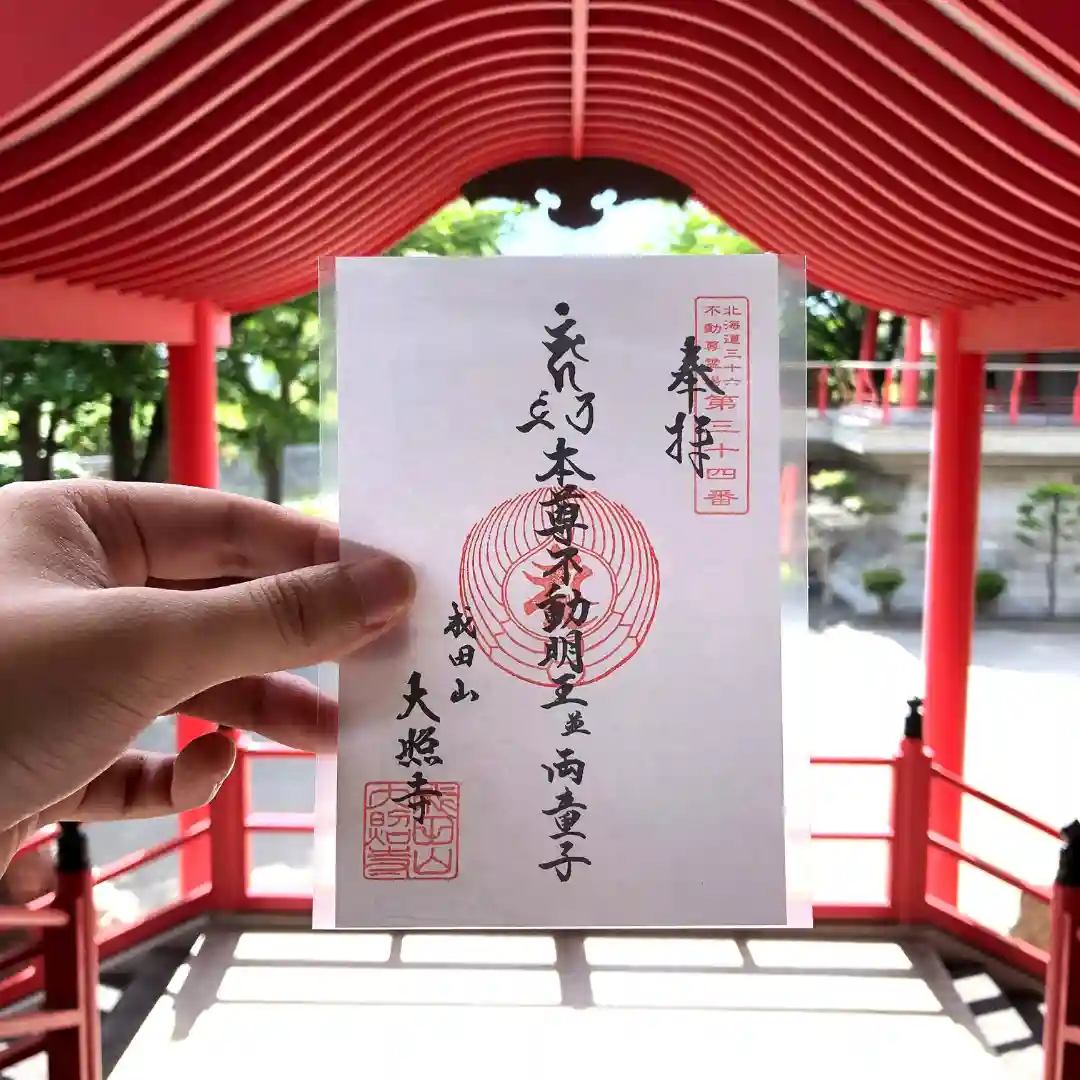 北海道三十六
不動尊霊場
第三十四番
奉拝
本尊不動明王並両童子
成田山
大照寺